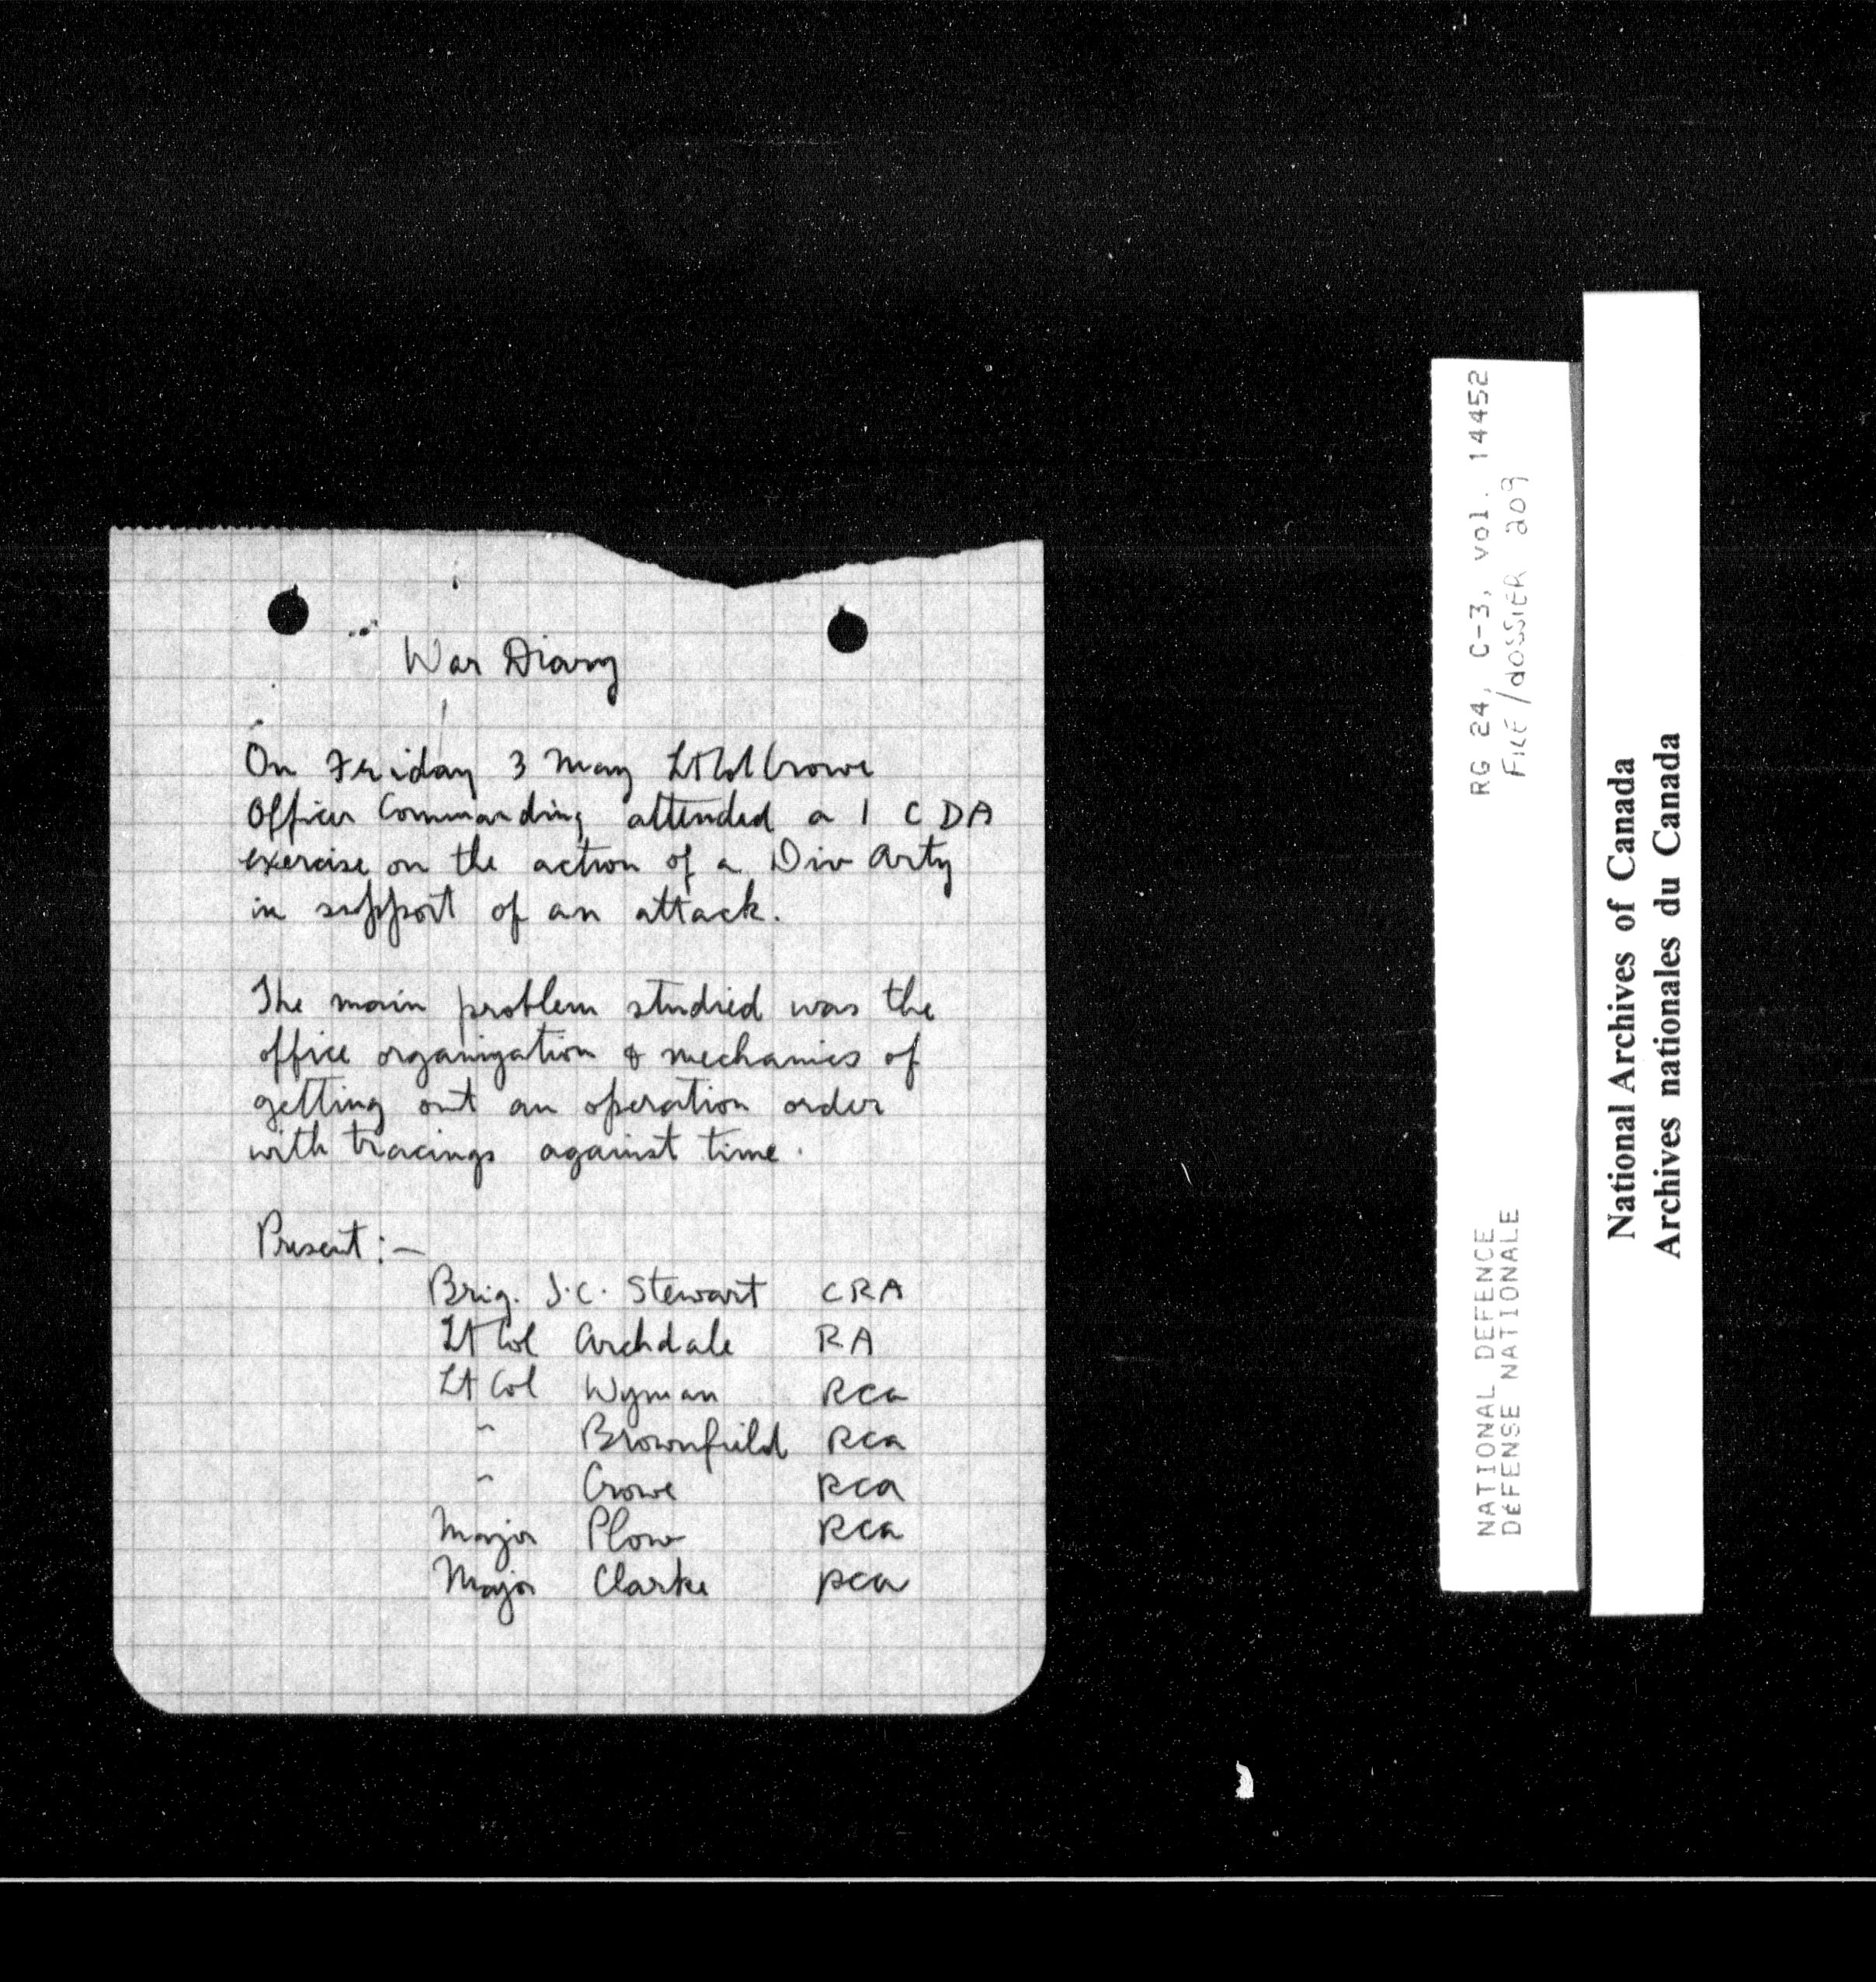 War Diary
On Friday 3 May Lt Col Crowe
Officer Commanding attended a 1 CDA
exercise on the action of a Div Arty
in support of an attack.
The main problem studied was the
office organization & mechanics of
getting out an operation order
with tracings against time.
Present :—
Brig. J.C. Stewart CRA
Lt Col Archdale RA
Lt Col Wyman RCA
" Brownfield RCA
" Crowe RCA
Major Plow RCA
Major Clarke RCA
RG 24, C-3, vol. 14452
FILE/dOSSIER 209
NATIONAL DEFENCE
DéFENSE NATIONALE
National Archives of Canada
Archives nationales du Canada